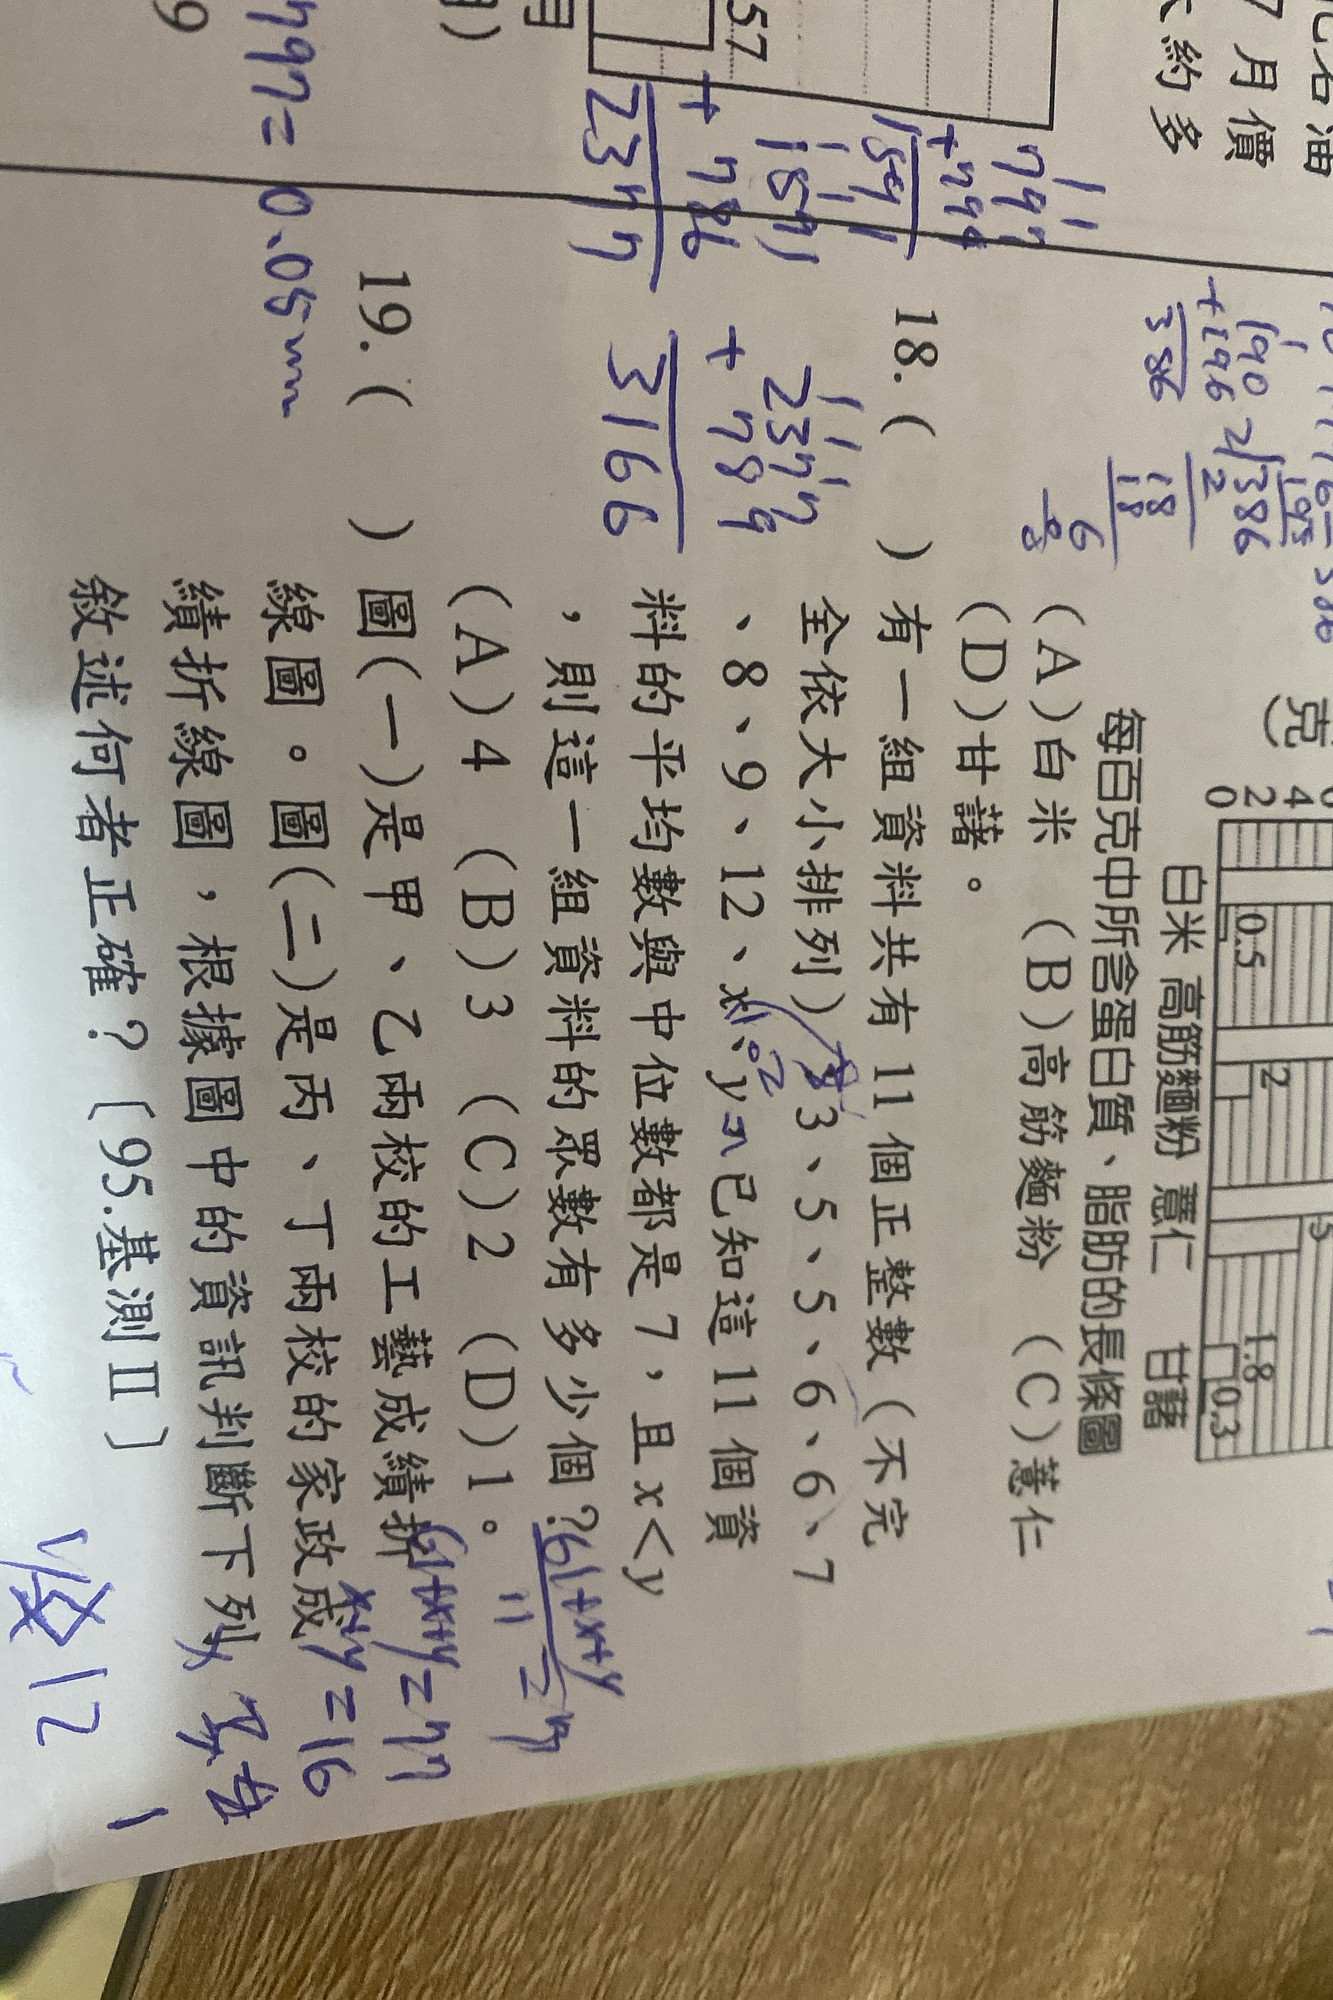 化石油
7月價
大約多
57
月
)
797
+794
1591
1591
+786
2377
2377
+789
3166
797=0.05mm
190
+196
386
2√386
2
18
18
6
克)
4
2
0
0.5
2
5
1.8
0.3
白米 高筋麵粉 薏仁 甘藷
每百克中所含蛋白質、脂肪的長條圖
(A)白米 (B)高筋麵粉 (C)薏仁
(D)甘藷。
18.( )有一組資料共有11個正整數(不完
全依大小排列)3、5、5、6、6、7
、8、9、12、x、y。已知這11個資
料的平均數與中位數都是7，且x<y
，則這一組資料的眾數有多少個?
(A)4 (B)3 (C)2 (D)1。
61+x+y
11
=7
61+x+y=77
x+y=16
19.( )圖(一)是甲、乙兩校的工藝成績折
線圖。圖(二)是丙、丁兩校的家政成
績折線圖，根據圖中的資訊判斷下列
敘述何者正確?〔95.基測Ⅱ〕